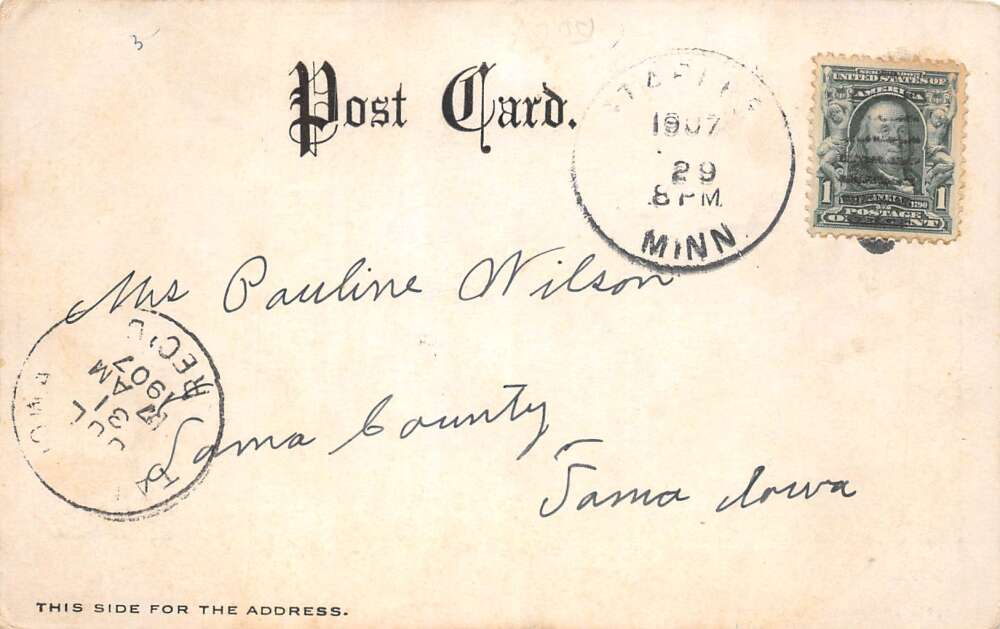 3
Post Card.
1907
29
8 PM
MINN
SERIES 1902
UNITED STATES OF
AMERICA
1 FRANKLIN 1790 1
POSTAGE
ONE CENT
Mrs Pauline Wilson
Tama County
Tama Iowa
REC'D
JUL
31
7 AM
1907
IOWA
THIS SIDE FOR THE ADDRESS.